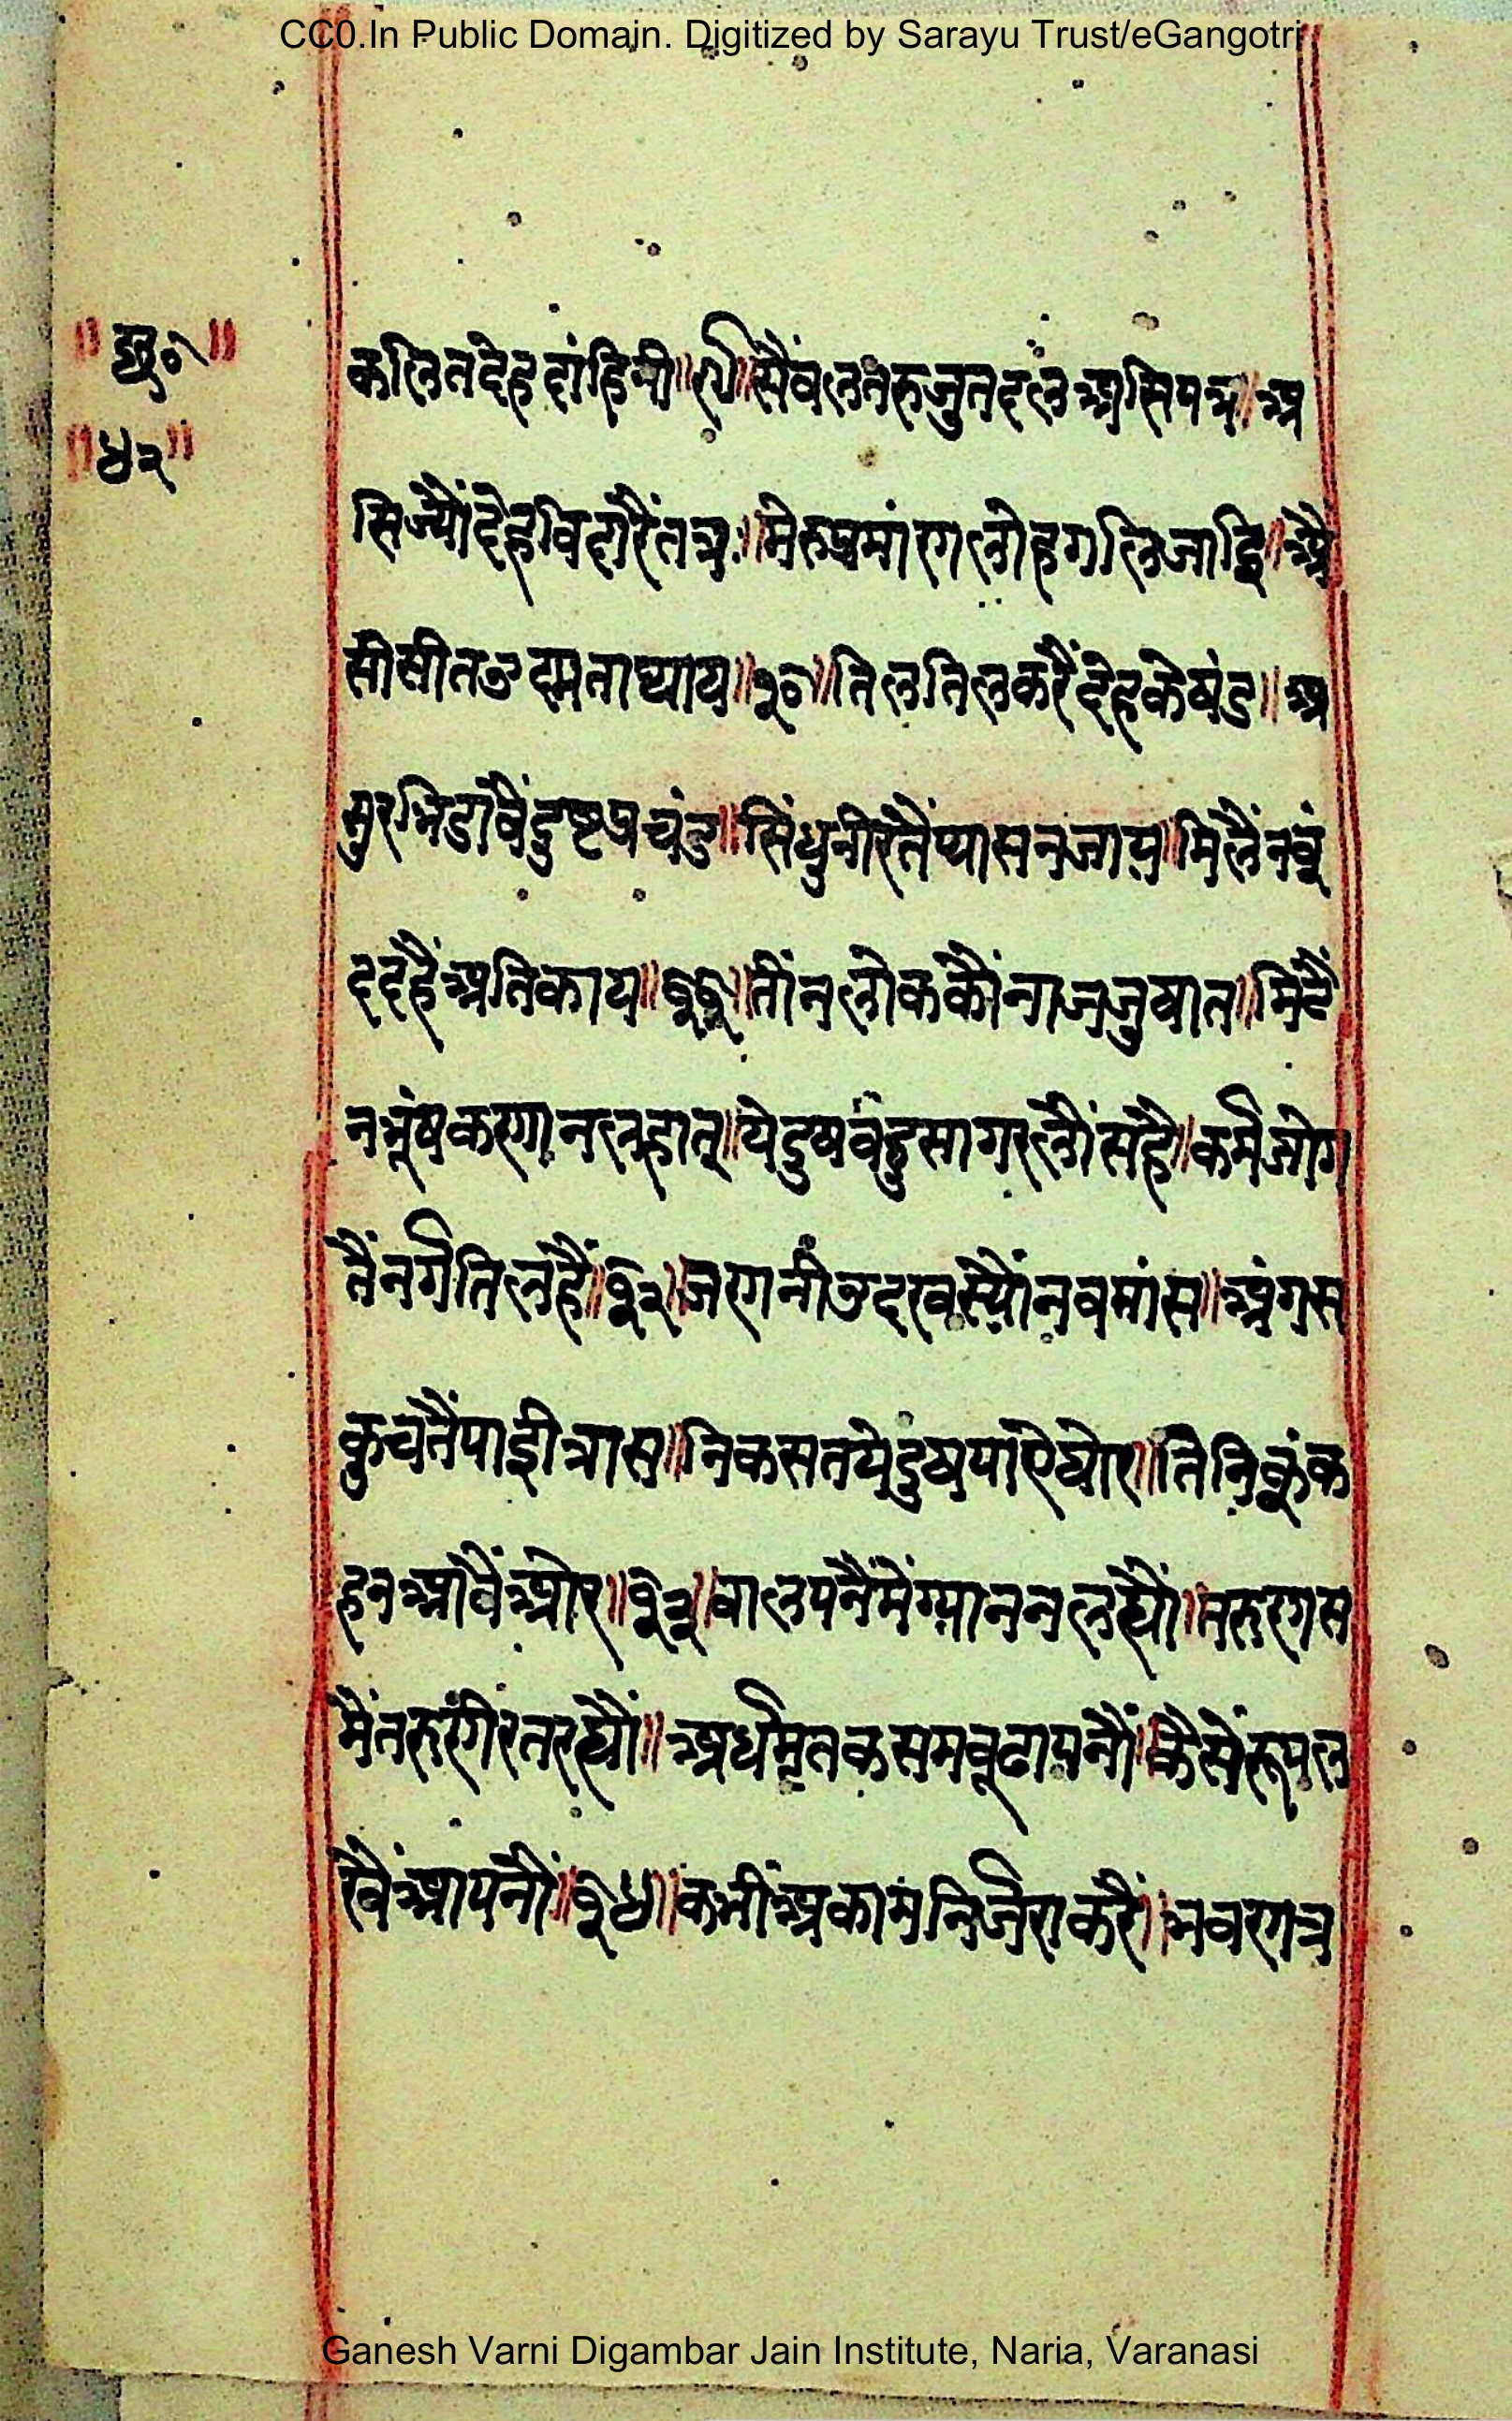 CC0.In Public Domain. Digitized by Sarayu Trust/eGangotri
॥ ४२ ॥
कलितदेहदांहिनी॥९॥सैंबलतरुजुतदलअसिपत्र॥अ
सिज्यौंदेहविदारैंतत्र॥मेरुप्रमांणलोहगलिजाइ॥अै
सीसीतउस्मताथाय॥१०॥तिलतिलकरैंदेहकेषंड॥अ
सुरभिडावैंदुष्टप्रचंड॥सिंधुनीरतैंप्यासनजाय॥मिलैंनबूं
ददहैंअतिकाय॥११॥तींनलोककौंनाजजुषात॥मिटैं
नभूंषकणानलहात॥येदुषबहुसागरलौंसहै॥कर्मजोग
तैंनर्गतिलहैं॥१२॥जणनीउदरवस्यौंनवमांस॥अंगस
कुचतैंपाईत्रास॥निकसतयेदुषपाऐघोर॥तिनिकूंक
हनआवैंओर॥१३॥बालपनैंमेंग्याननलह्यौं॥तरुणस
मैंतरुणीरतरह्यौं॥अर्धमृतकसमबूढापनौं॥कैसेंरूपल
खैंआपनौं॥१४॥कभींअकामनिर्जराकरैं॥भवणत्र
Ganesh Varni Digambar Jain Institute, Naria, Varanasi